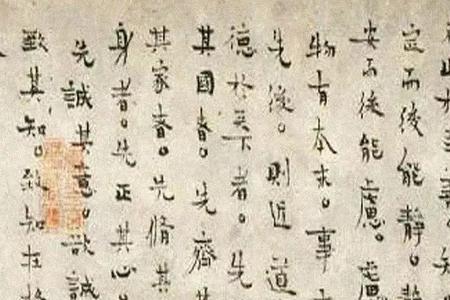 止於至善。知
定而後能靜。靜
安而後能慮。慮
物有本末。事
先後。則近道
德於天下者。先
其國者。先齊其
其家者。先脩其
身者。先正其心。
先誠其意。欲誠
致其知。致知在格